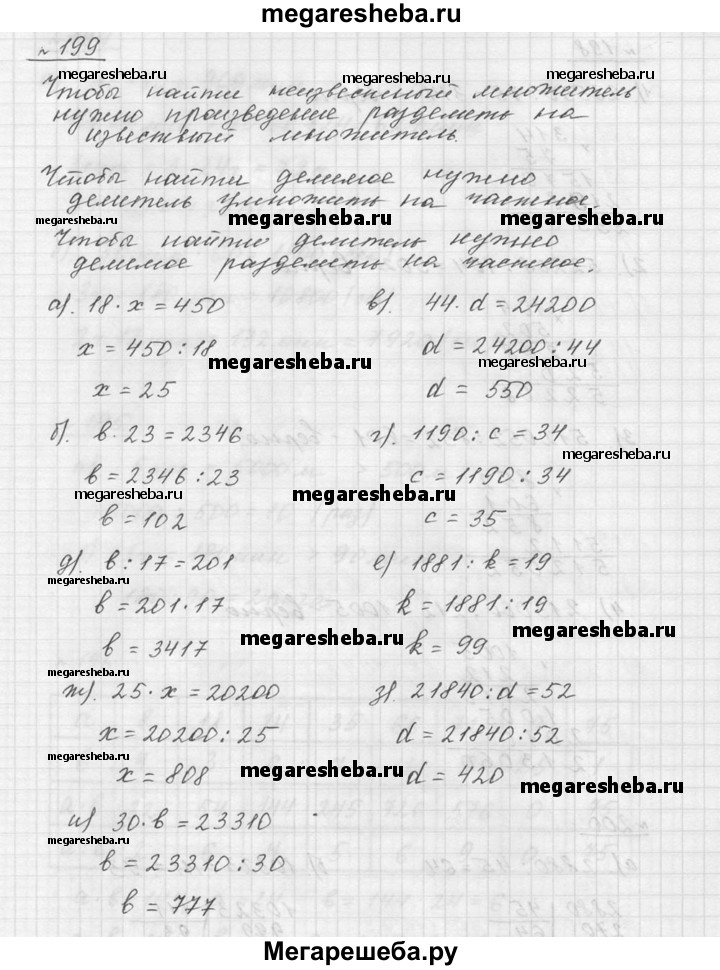 megaresheba.ru
№ 199
megaresheba.ru megaresheba.ru megaresheba.ru
Чтобы найти неизвестный множитель
нужно произведение разделить на
известный множитель.
Чтобы найти делимое нужно
делитель умножить на частное.
megaresheba.ru megaresheba.ru megaresheba.ru
Чтобы найти делитель нужно
делимое разделить на частное.
а). 18 · x = 450 в). 44 · d = 24200
x = 450 : 18 d = 24200 : 44
megaresheba.ru megaresheba.ru
x = 25 d = 550
б). в · 23 = 2346 г). 1190 : c = 34
megaresheba.ru
в = 2346 : 23 c = 1190 : 34
megaresheba.ru megaresheba.ru
в = 102 c = 35
д). в : 17 = 201 е). 1881 : k = 19
megaresheba.ru
в = 201 · 17 k = 1881 : 19
megaresheba.ru megaresheba.ru
в = 3417 k = 99
ж). 25 · x = 20200 з). 21840 : d = 52
x = 20200 : 25 d = 21840 : 52
megaresheba.ru megaresheba.ru megaresheba.ru
x = 808 d = 420
и) 30 · в = 23310
megaresheba.ru
в = 23310 : 30
в = 777
Мегарешеба.ру